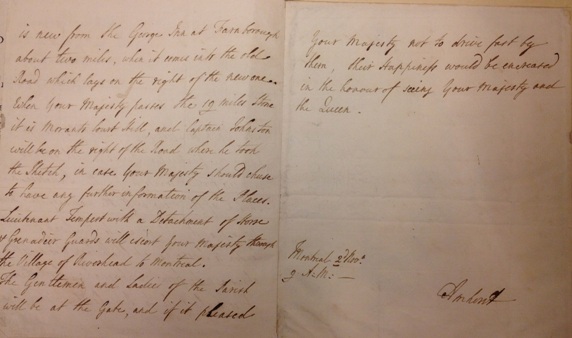 is new from the George Inn at Farnborough
about two miles, when it comes into the old
Road which lays on the right of the new one.
When Your Majesty passes the 19 miles Stone
it is Morants Court Hill, and Captain Johnston
will be on the right of the Road where he took
the Sketch, in case Your Majesty should chuse
to have any further information of the Places.
Lieutenant Tempest with a Detachment of Horse
Grenadier Guards will escort Your Majesty through
the Village of Riverhead to Montreal.
The Gentlemen and Ladies of the Parish
will be at the Gate, and if it pleased
Your Majesty not to drive fast by
them, their Happiness would be encreased
in the honour of seeing Your Majesty and
the Queen.
Montreal 2d Novr.
9 A.M. —
Amherst